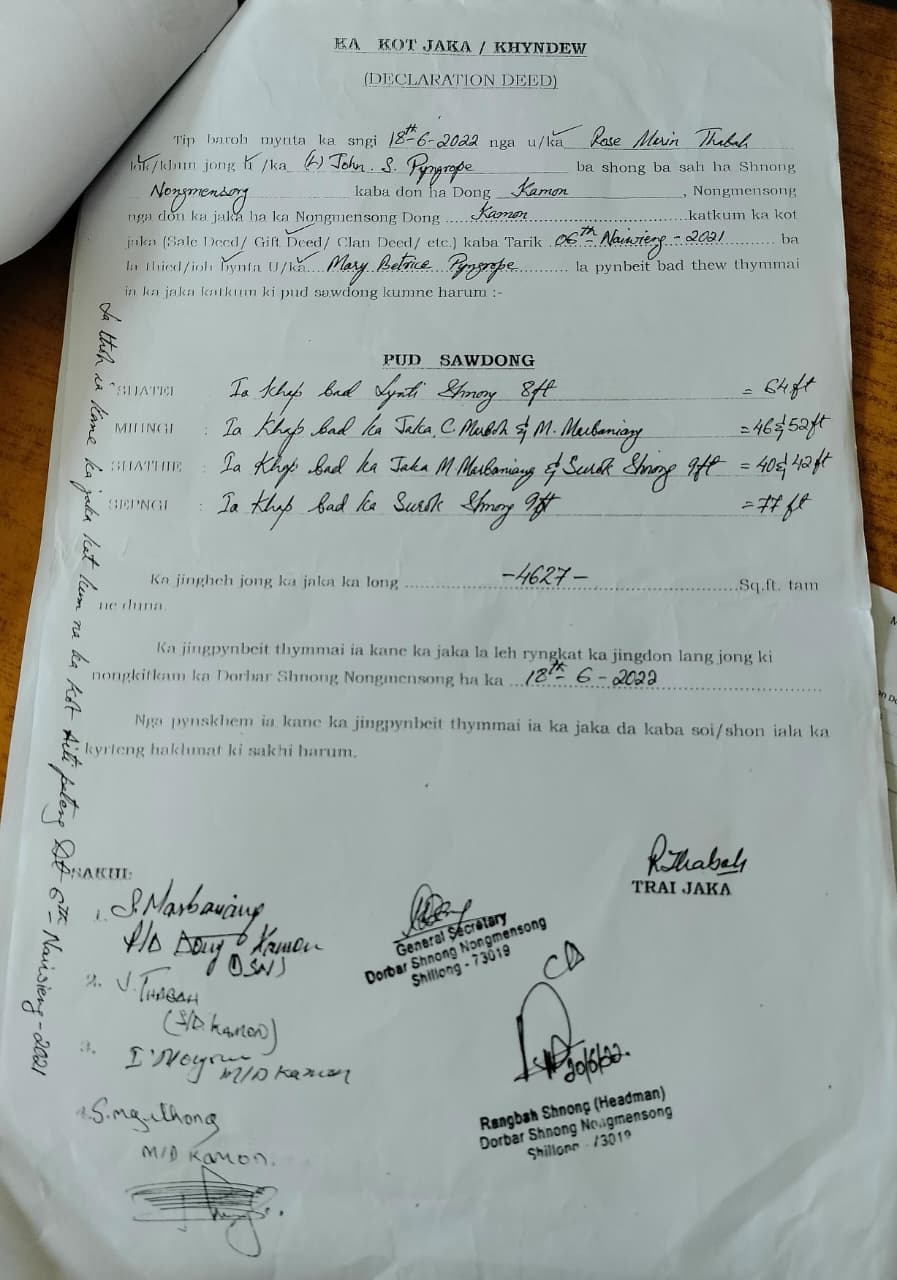 KA KOT JAKA / KHYNDEW
(DECLARATION DEED)
Tip baroh mynta ka sngi 18th-6-2022 nga u/ka Rose Merin Thabah
lok/khun jong u /ka (L) John. S. Pyngrope ba shong ba sah ha Shnong
Nongmensong kaba don ha Dong Kamon, Nongmensong
nga don ka jaka ha ka Nongmensong Dong ....Kamon....katkum ka kot
jaka (Sale Deed/ Gift Deed/ Clan Deed/ etc.) kaba Tarik 06th- Naiwieng - 2021 ba
la thied/ioh bynta U/ka... Mary Betrice Pyngrope... la pynbeit bad thew thymmai
ia ka jaka katkum ki pud sawdong kumne harum :-
PUD SAWDONG
SHATEI : Ia Khap bad Lynti Shnong 8ft = 64 ft
MIHNGI : Ia Khap bad ka Jaka, C. & M. Marbaniang = 46 & 52 ft
SHATHIE : Ia Khap bad ka Jaka M. Marbaniang & Surok Shnong 9ft = 40 & 42 ft
SEPNGI : Ia Khap bad ka Surok Shnong 9ft = 77 ft
Ka jingheh jong ka jaka ka long ....-4627-....Sq.ft. tam
ne duna.
Ka jingpynbeit thymmai ia kane ka jaka la leh ryngkat ka jingdon lang jong ki
nongkitkam ka Dorbar Shnong Nongmensong ha ka ...18th- 6 - 2022
Nga pynskhem ia kane ka jingpynbeit thymmai ia ka jaka da kaba soi/shon iala ka
kyrteng hakhmat ki sakhi harum.
La thoh ia kane ka jaka kat kum na ka kot Dt 6th Naiwieng-2021
R. Thabah
TRAI JAKA
SAKHI:
1. S. Marbaniang
Dong Kamon
(DSN)
2. J. THABAH
(S/D. Kamon)
3.
M/D Kamon
4. S.
M/D Kamon.
General Secretary
Dorbar Shnong Nongmensong
Shillong - 73019
20/6/22.
Rangbah Shnong (Headman)
Dorbar Shnong Nongmensong
Shillong - 73019